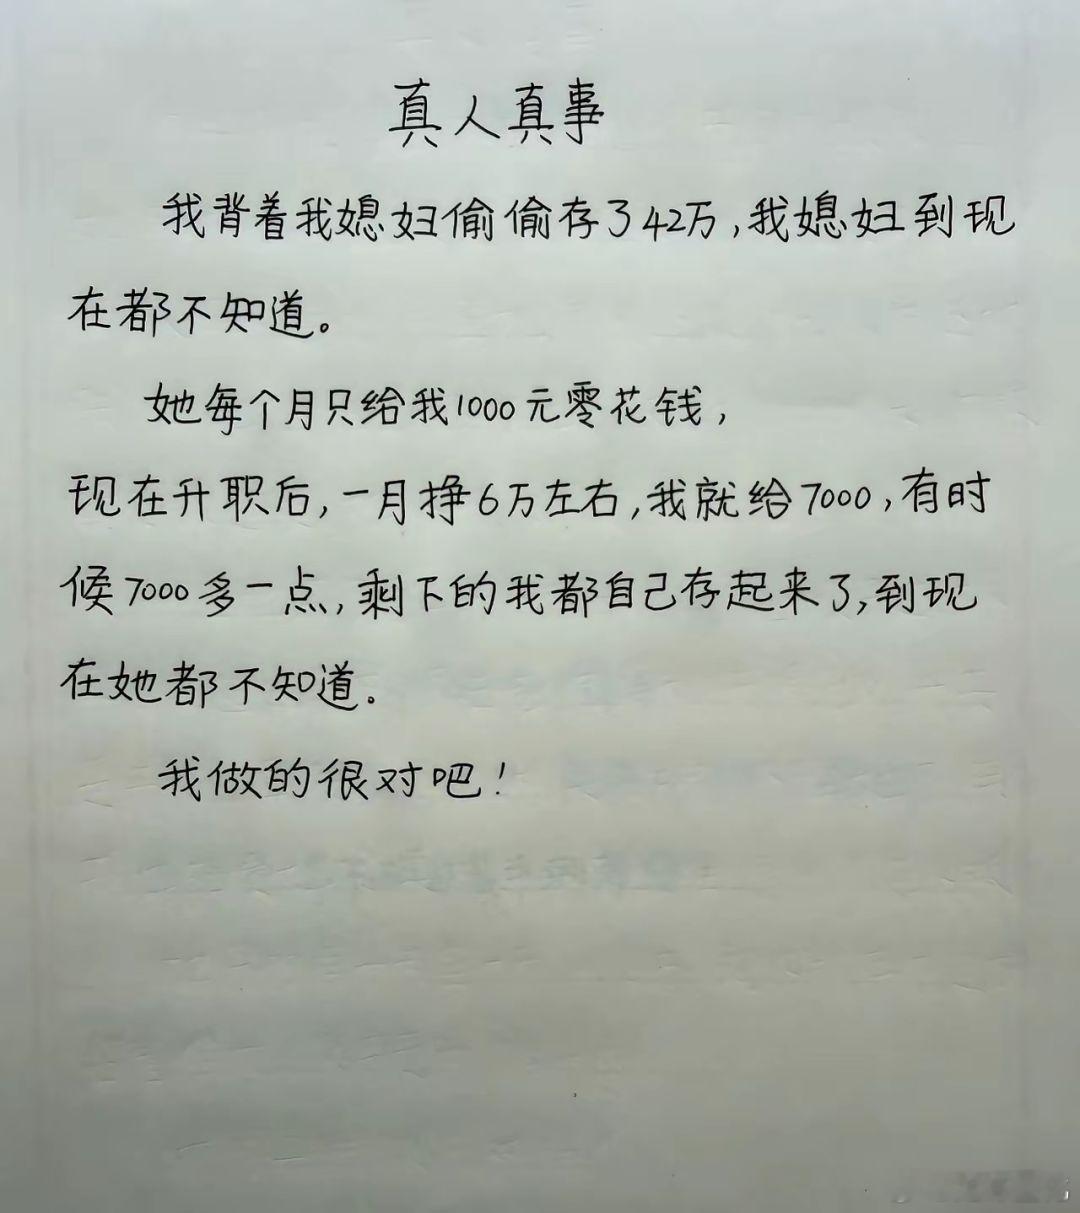 真人真事
我背着我媳妇偷偷存了42万,我媳妇到现
在都不知道。
她每个月只给我1000元零花钱,
现在升职后,一月挣6万左右,我就给7000,有时
候7000多一点,剩下的我都自己存起来了,到现
在她都不知道.
我做的很对吧!